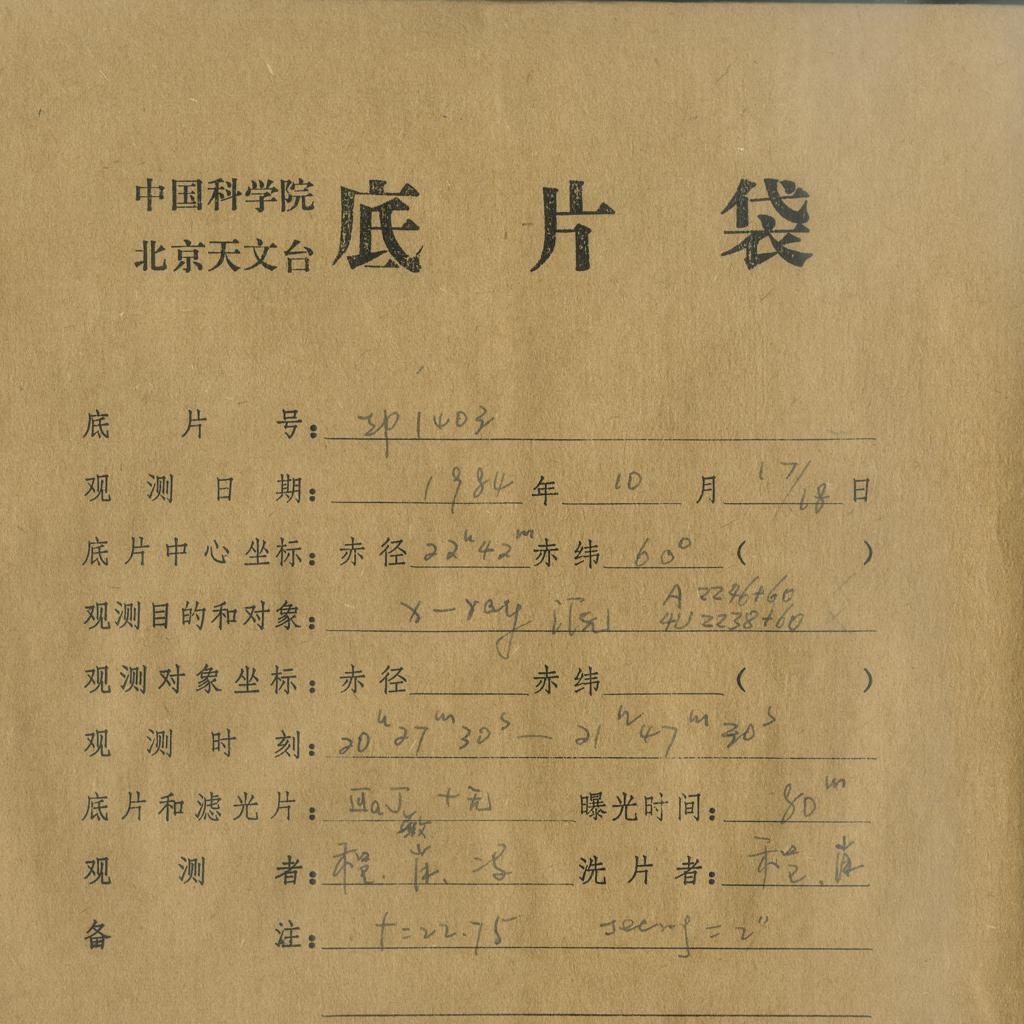 中国科学院
北京天文台
底片袋
底片号: 1403
观测日期: 1984年10月17/18日
底片中心坐标: 赤径22h42m赤纬60° ( )
观测目的和对象: x-ray 源 A 2246+60
4U 2238+60
观测对象坐标: 赤径 赤纬 ( )
观测时刻: 20h27m30s — 21h47m30s
底片和滤光片: IIaJ敏+无 曝光时间: 80m
观测者: 程. 肖. 洗片者: 程. 肖
备注: t=22.75 seeing=2"